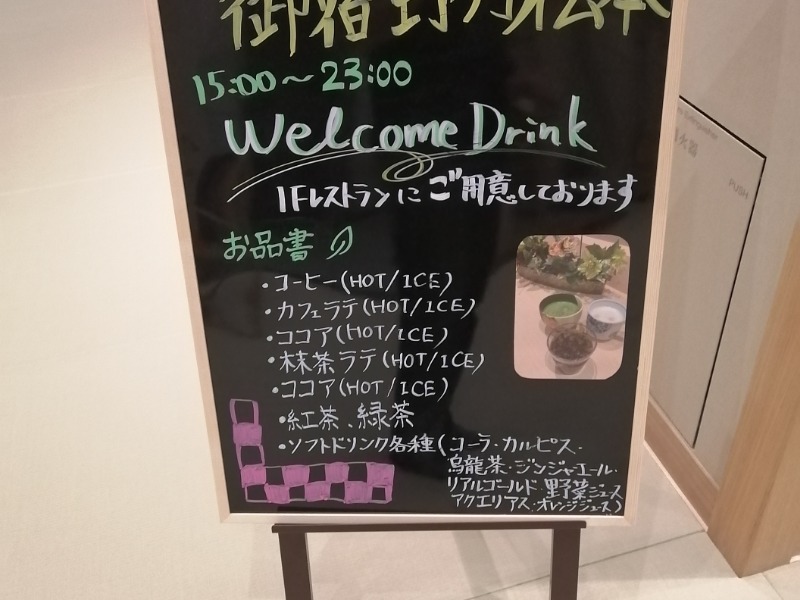 御宿 野乃 松本
15:00～23:00
Welcome Drink
1Fレストランに ご用意しております
お品書
・コーヒー(HOT/ICE)
・カフェラテ(HOT/ICE)
・ココア(HOT/ICE)
・抹茶ラテ(HOT/ICE)
・ココア(HOT/ICE)
・紅茶、緑茶
・ソフトドリンク各種(コーラ・カルピス・
烏龍茶・ジンジャーエール・
リアルゴールド・野菜ジュース
アクエリアス・オレンジジュース)
消火器
PUSH